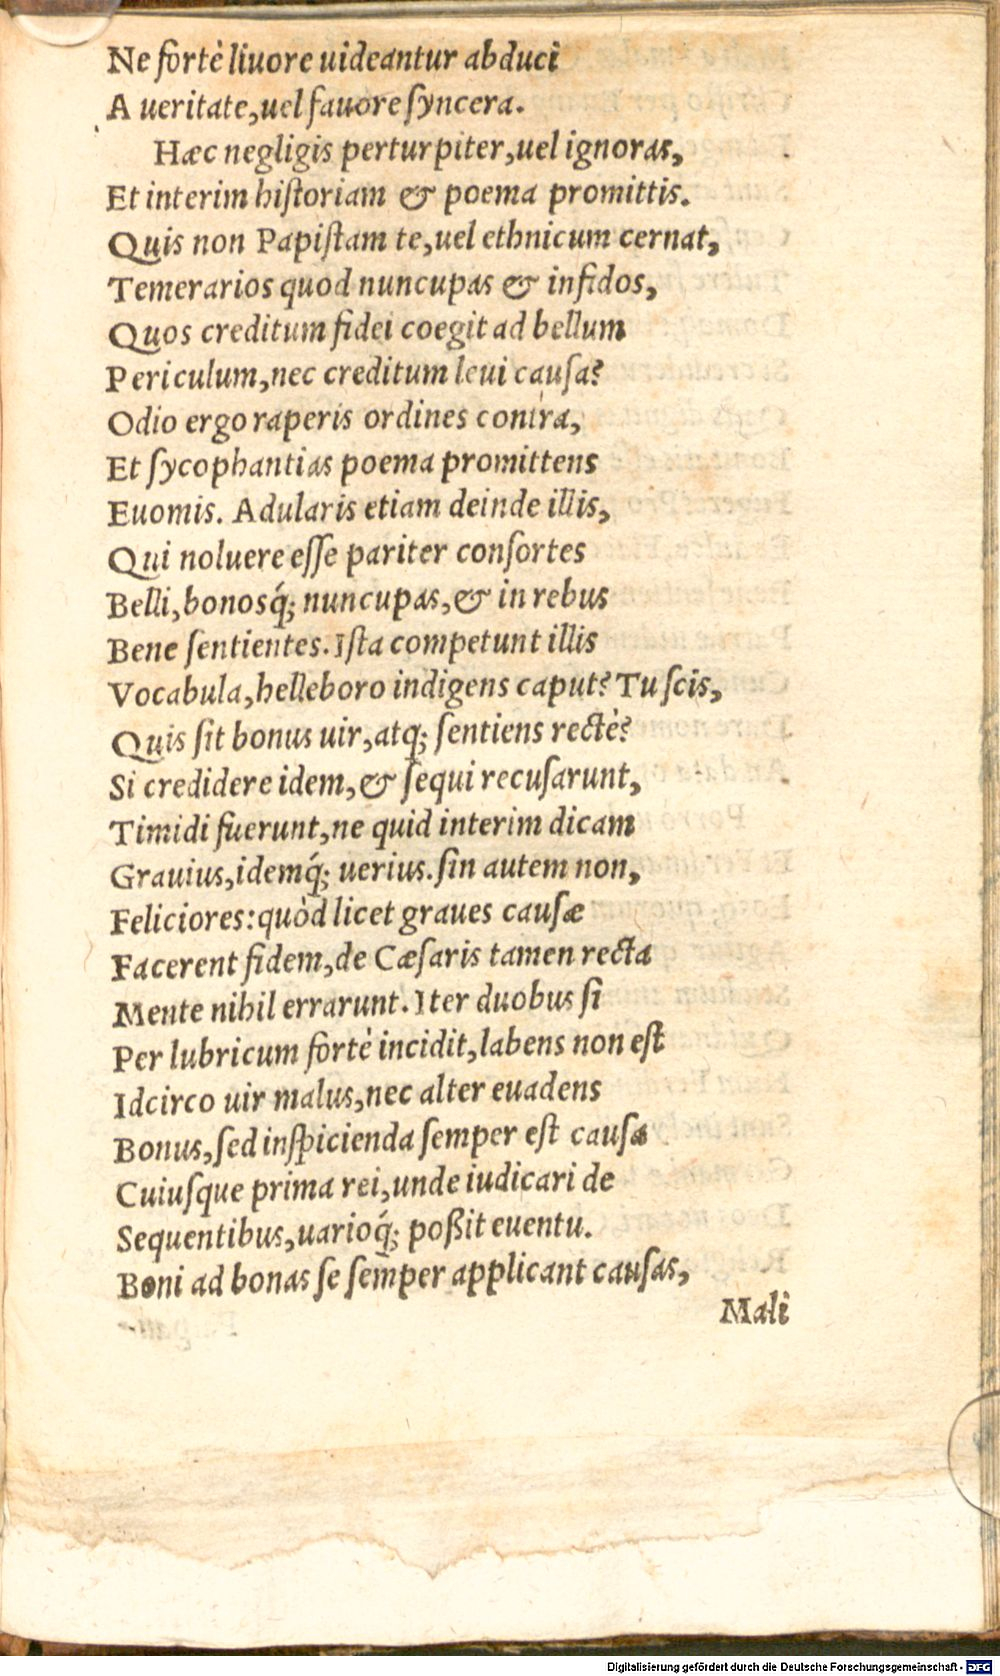 Ne fortè liuore uideantur abduci
A ueritate,uel fauore syncera.
Hæc negligis perturpiter,uel ignoras,
Et interim historiam & poema promittis.
Quis non Papistam te,uel ethnicum cernat,
Temerarios quod nuncupas & infidos,
Quos creditum fidei coegit ad bellum
Periculum,nec creditum leui causa?
Odio ergo raperis ordines contra,
Et sycophantias poema promittens
Euomis. Adularis etiam deinde illis,
Qui noluere esse pariter consortes
Belli,bonosq́; nuncupas,& in rebus
Bene sentientes. Ista competunt illis
Vocabula,helleboro indigens caput? Tu scis,
Quis sit bonus uir,atq; sentiens rectè?
Si credidere idem,& sequi recusarunt,
Timidi fuerunt,ne quid interim dicam
Grauius,idemq́; uerius. sin autem non,
Feliciores: quòd licet graues causæ
Facerent fidem,de Cæsaris tamen recta
Mente nihil errarunt. Iter duobus si
Per lubricum fortè incidit,labens non est
Idcirco uir malus,nec alter euadens
Bonus,sed inspicienda semper est causa
Cuiusque prima rei,unde iudicari de
Sequentibus,uarioq́; poßit euentu.
Boni ad bonas se semper applicant causas,
Mali
Digitalisierung gefördert durch die Deutsche Forschungsgemeinschaft - DFG